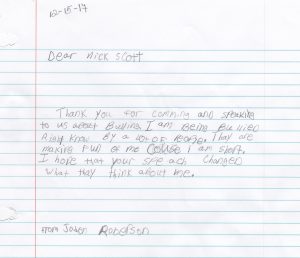 12-15-17
Dear Nick Scott
Thank you for comming and speaking
to us about Bullying. I am Being Bullied
Right know By a lot of people. They are
making fun of me I am short.
I hope that your speach Changed
what thay think about me.
From Robertson